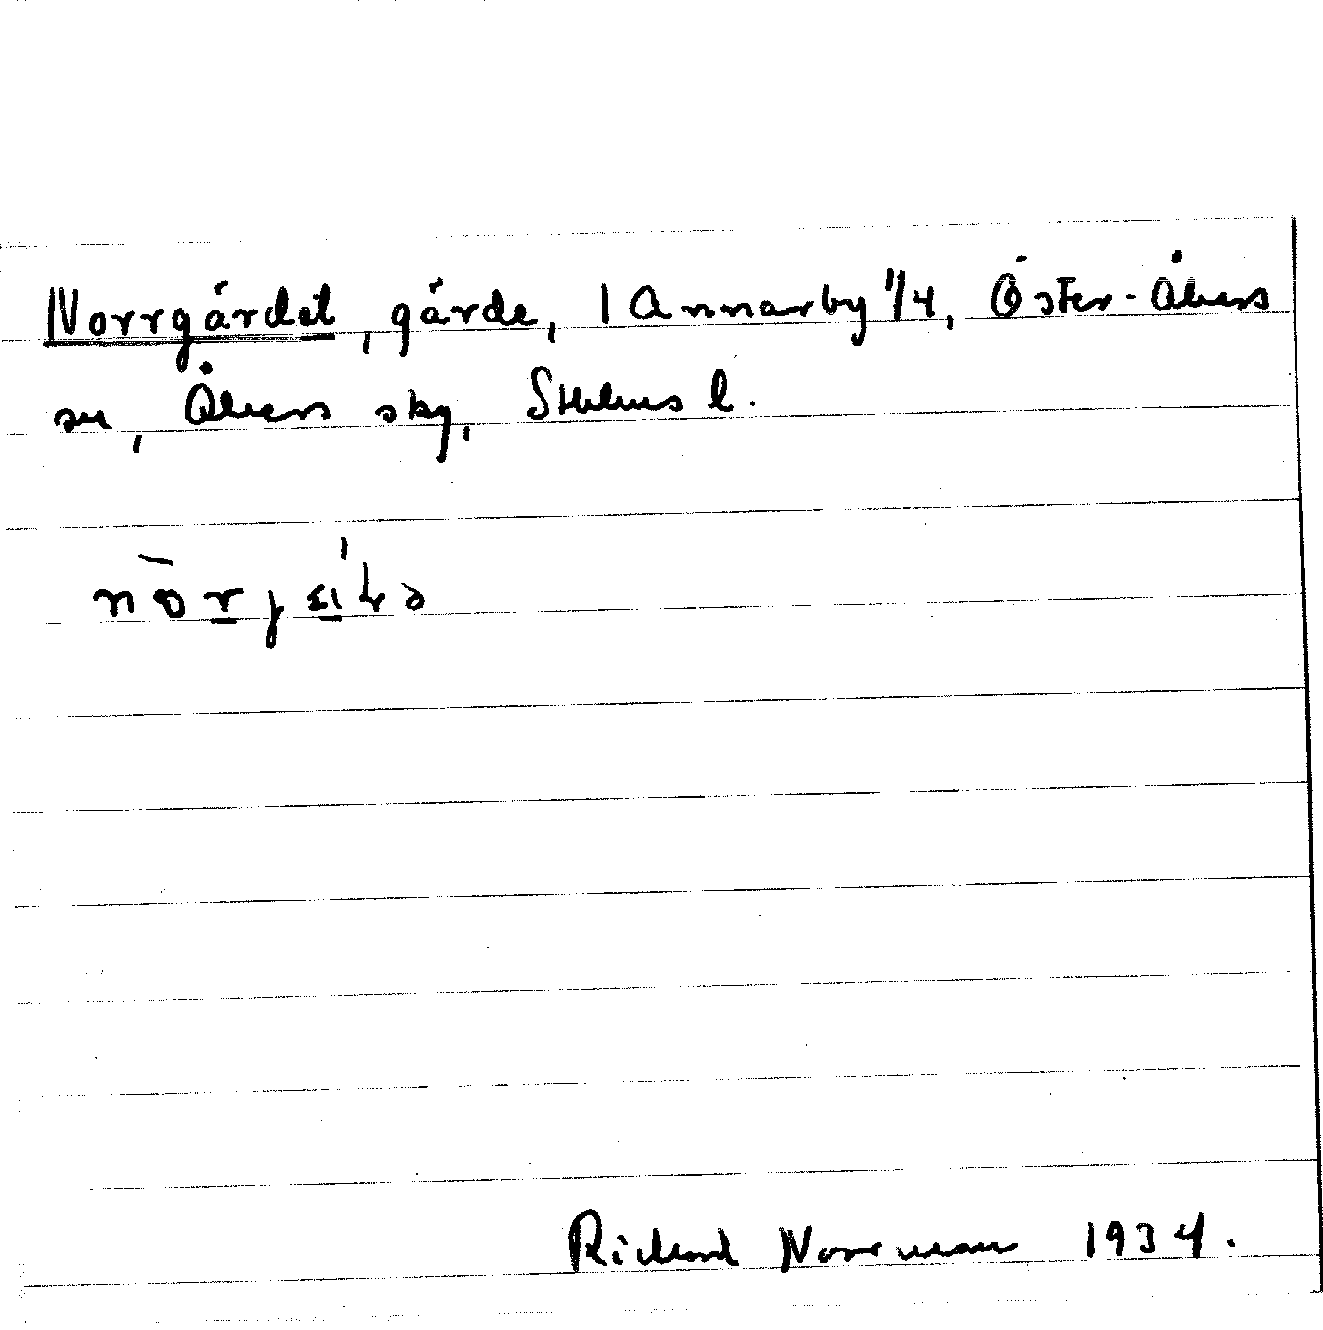 Norrgärdet, gärde, 1 Annarby 1/4, Öster-Åkers
sn, Åkers sky, Sthlms l.
Richard Norrman 1934.